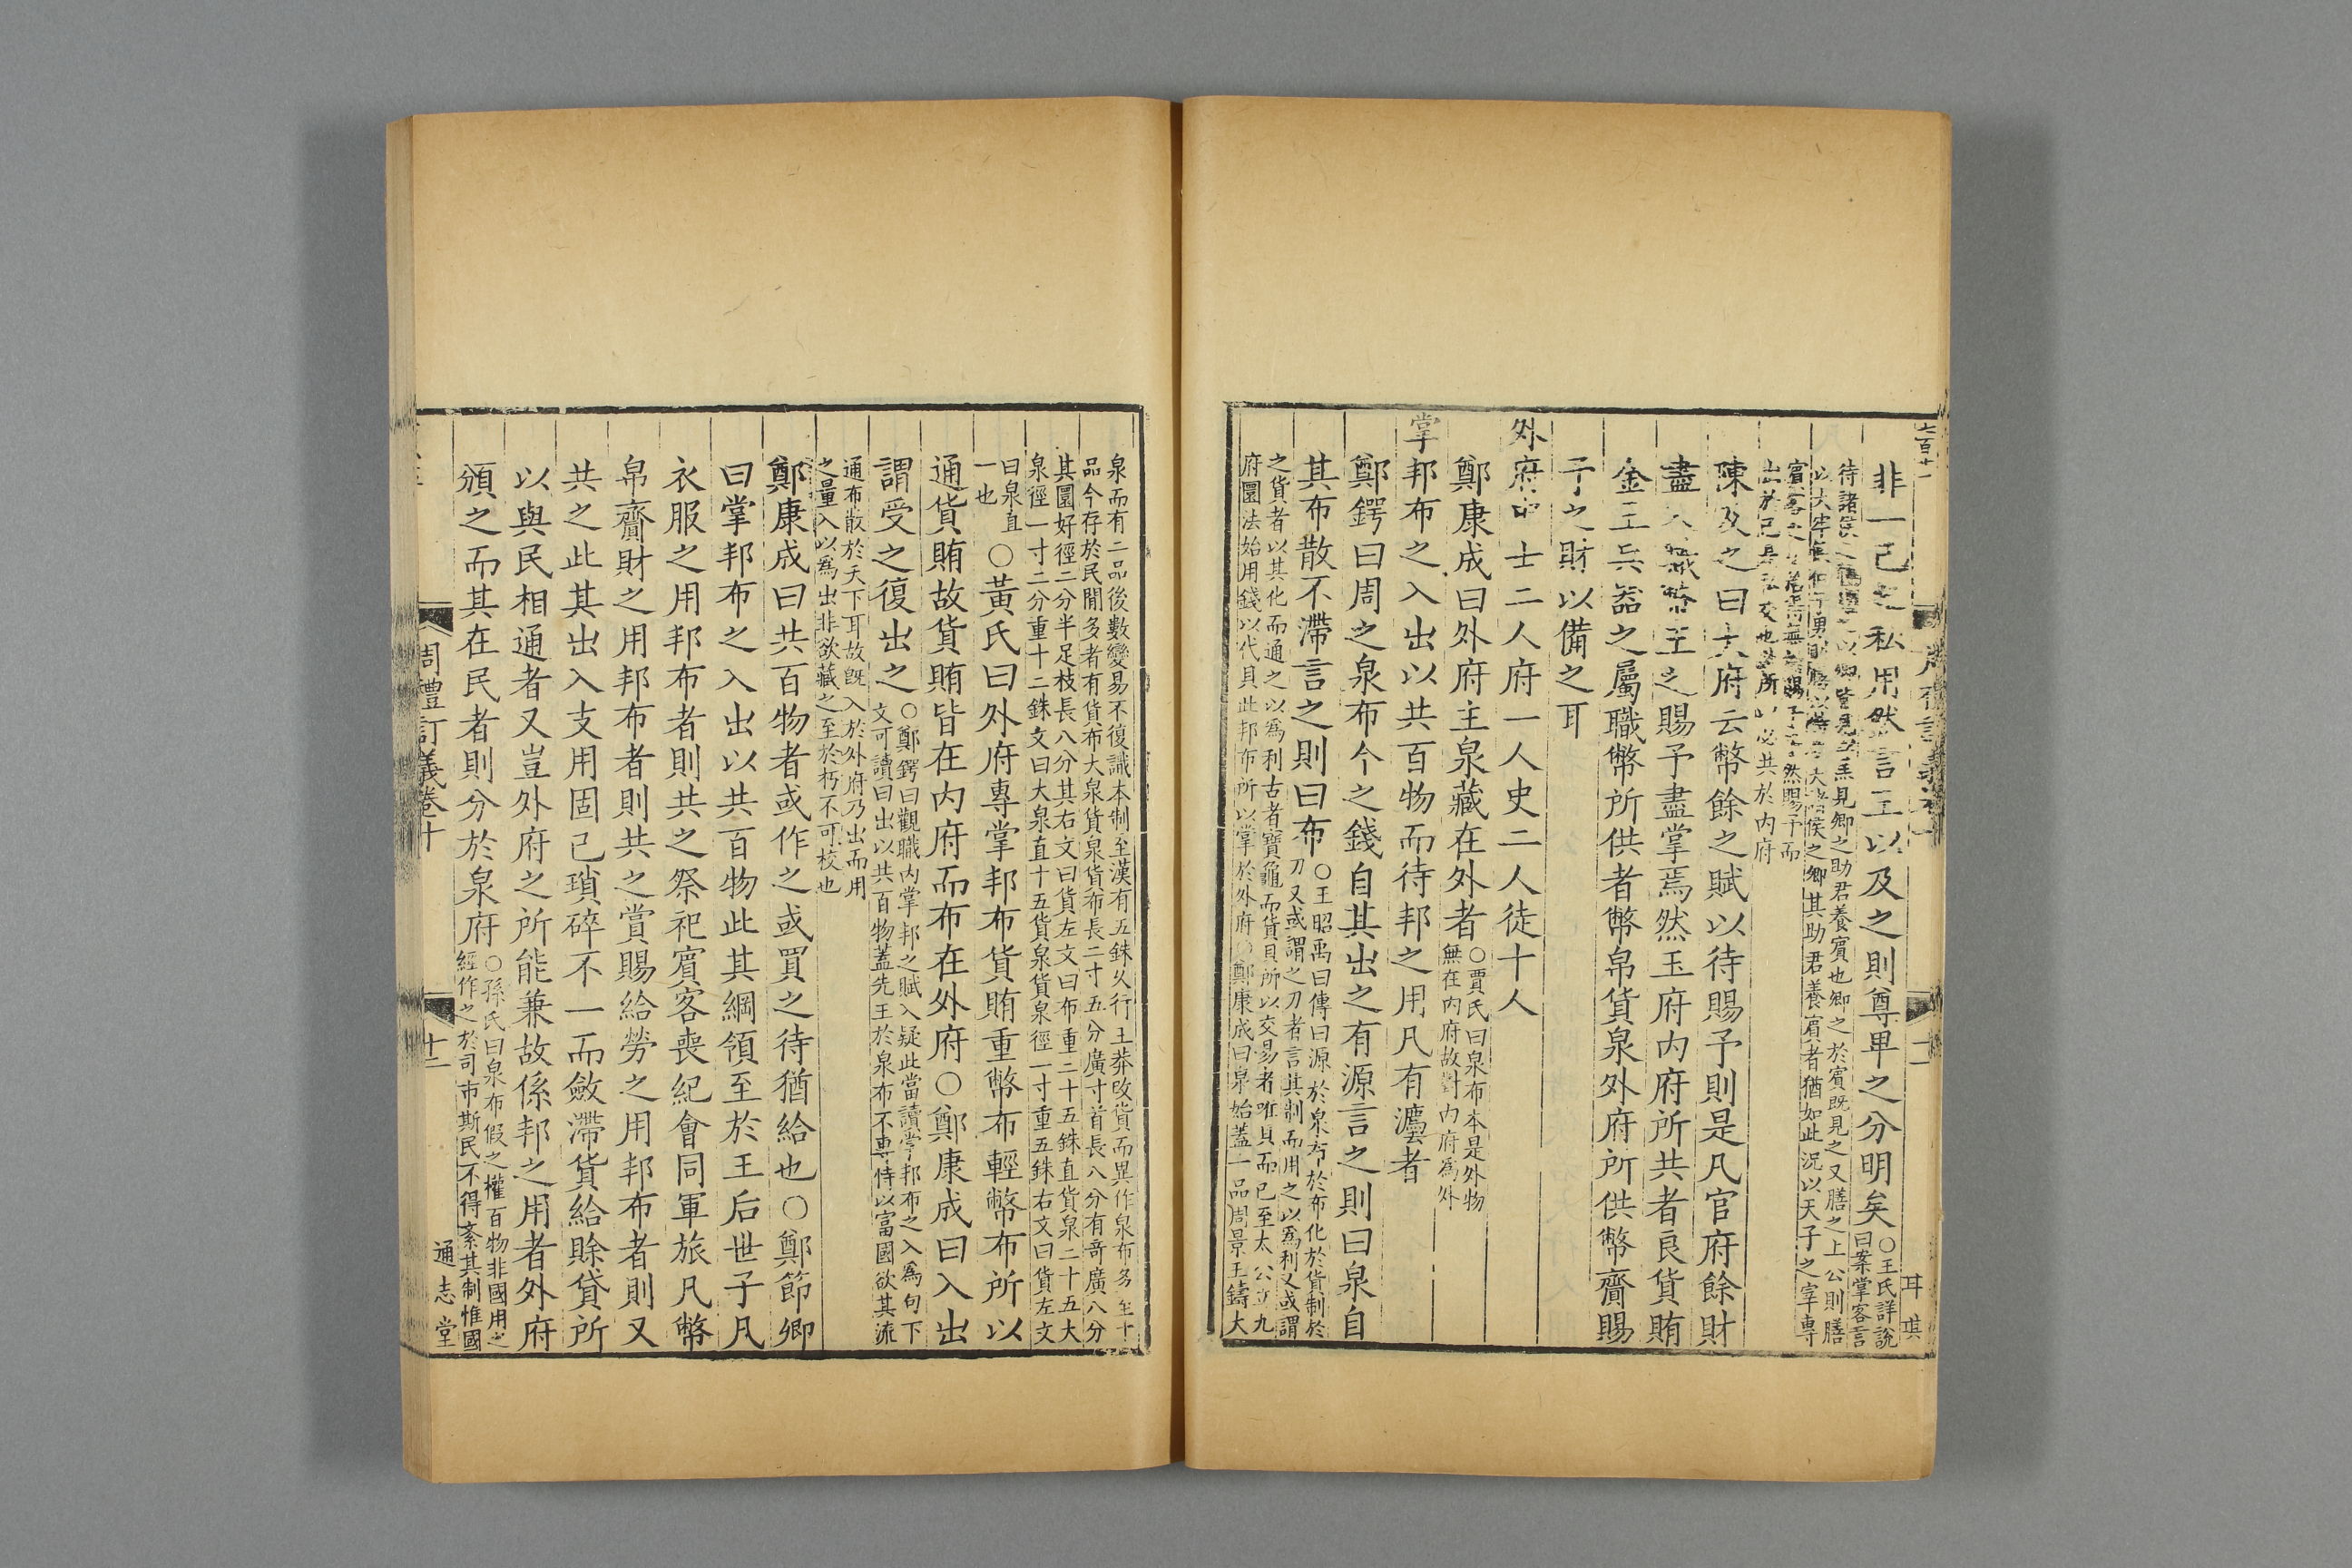 非一己之私用然言王以及之則尊卑之分明矣
○王氏詳說
曰案掌客言
待諸侯之
以卿皆見
羔見卿之助君養賓也卿之於賓既見之又膳之上公則膳
以大牢
大諸侯之卿其助君養賓者猶如此況以天子之宰專
賓客之
賜予
然賜予而
出於己
私交也
所以必共於內府
陳及之曰大府云幣餘之賦以待賜予則是凡官府餘財
盡入職幣王之賜予盡掌焉然玉府內府所共者良貨賄
金玉兵器之屬職幣所供者幣帛貨泉外府所供幣齎賜
予之財以備之耳
外府中士二人府一人史二人徒十人
鄭康成曰外府主泉藏在外者
○賈氏曰泉布本是外物
無在內府故對內府為外
掌邦布之入出以共百物而待邦之用凡有灋者
鄭鍔曰周之泉布今之錢自其出之有源言之則曰泉自
其布散不滯言之則曰布
○王昭禹曰傳曰源於泉布於布化於貨制於
刀又或謂之刀者言其制而用之以為利又或謂
之貨者以其化而通之以為利古者寶龜而貨貝所以交易者唯貝而已至太公立九
府圜法始用錢以代貝此邦布所以掌於外府○鄭康成曰泉始蓋一品周景王鑄大
泉而有二品後數變易不復識本制至漢有五銖久行王莽改貨而異作泉布多至十
品今存於民間多者有貨布大泉貨泉貨布長二寸五分廣寸首長八分有奇廣八分
其圜好徑二分半足枝長八分其右文曰貨左文曰布重二十五銖直貨泉二十五大
泉徑一寸二分重十二銖文曰大泉直十五貨泉貨泉徑一寸重五銖右文曰貨左文
曰泉直
一也
○黃氏曰外府專掌邦布貨賄重幣布輕幣布所以
通貨賄故貨賄皆在內府而布在外府○鄭康成曰入出
謂受之復出之
○鄭鍔曰觀職內掌邦之賦入疑此當讀掌邦布之入為句下
文可讀曰出以共百物蓋先王於泉布不專恃以富國欲其流
通布散於天下耳故既入於外府乃出而用
之量入以為出非欲藏之至於朽不可校也
鄭康成曰共百物者或作之或買之待猶給也○鄭節卿
曰掌邦布之入出以共百物此其綱領至於王后世子凡
衣服之用邦布者則共之祭祀賓客喪紀會同軍旅凡幣
帛齎財之用邦布者則共之賞賜給勞之用邦布者則又
共之此其出入支用固已瑣碎不一而斂滯貨給賒貸所
以與民相通者又豈外府之所能兼故係邦之用者外府
頒之而其在民者則分於泉府
○孫氏曰泉布假之權百物非國用之
經作之於司市斯民不得紊其制惟國
周禮訂義卷十
十二
通志堂